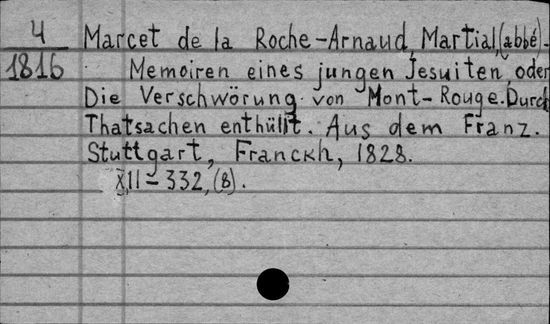 4
1816
Marcet de la Roche-Arnaud, Martial, (abbé)-
Memoiren eines jungen Jesuiten oder
Die Verschwörung von Mont-Rouge. Durch
Thatsachen enthüllt. Aus dem Franz.
Stuttgart, Franckh, 1828.
XII-332, (8).